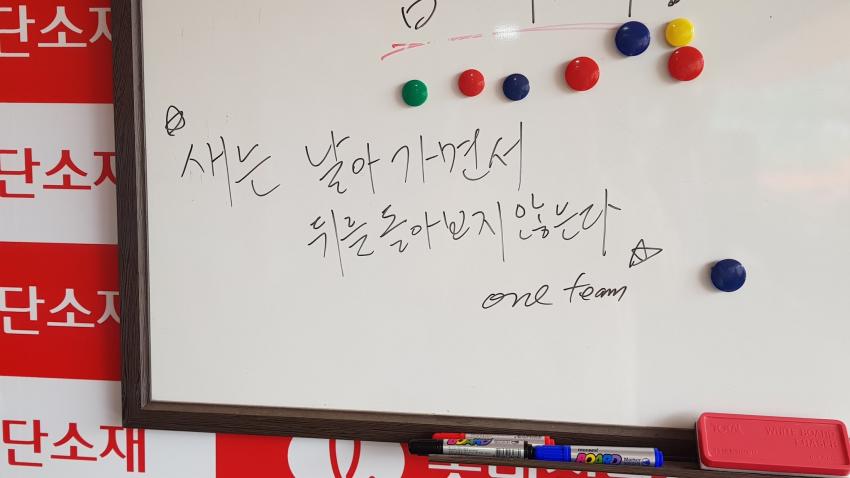 단소재
단소재
단소재
단소재
새는 날아가면서
뒤를 돌아보지 않는다
one team
TOTAL WHITE BOARD ERASER
BOARD
BOARD Marker